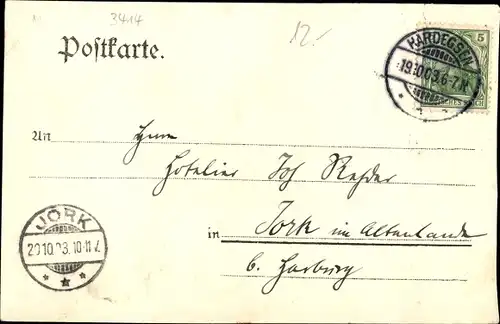 3414
12.-
Postkarte.
HARDEGSEN
19.10.03.6-7.N.
5
DEUTSCHES REICH
An Herrn
Hotelier Joh Rehder
in Jork im Altenlande
b. Harburg
JORK
20.10.03.10-11V.